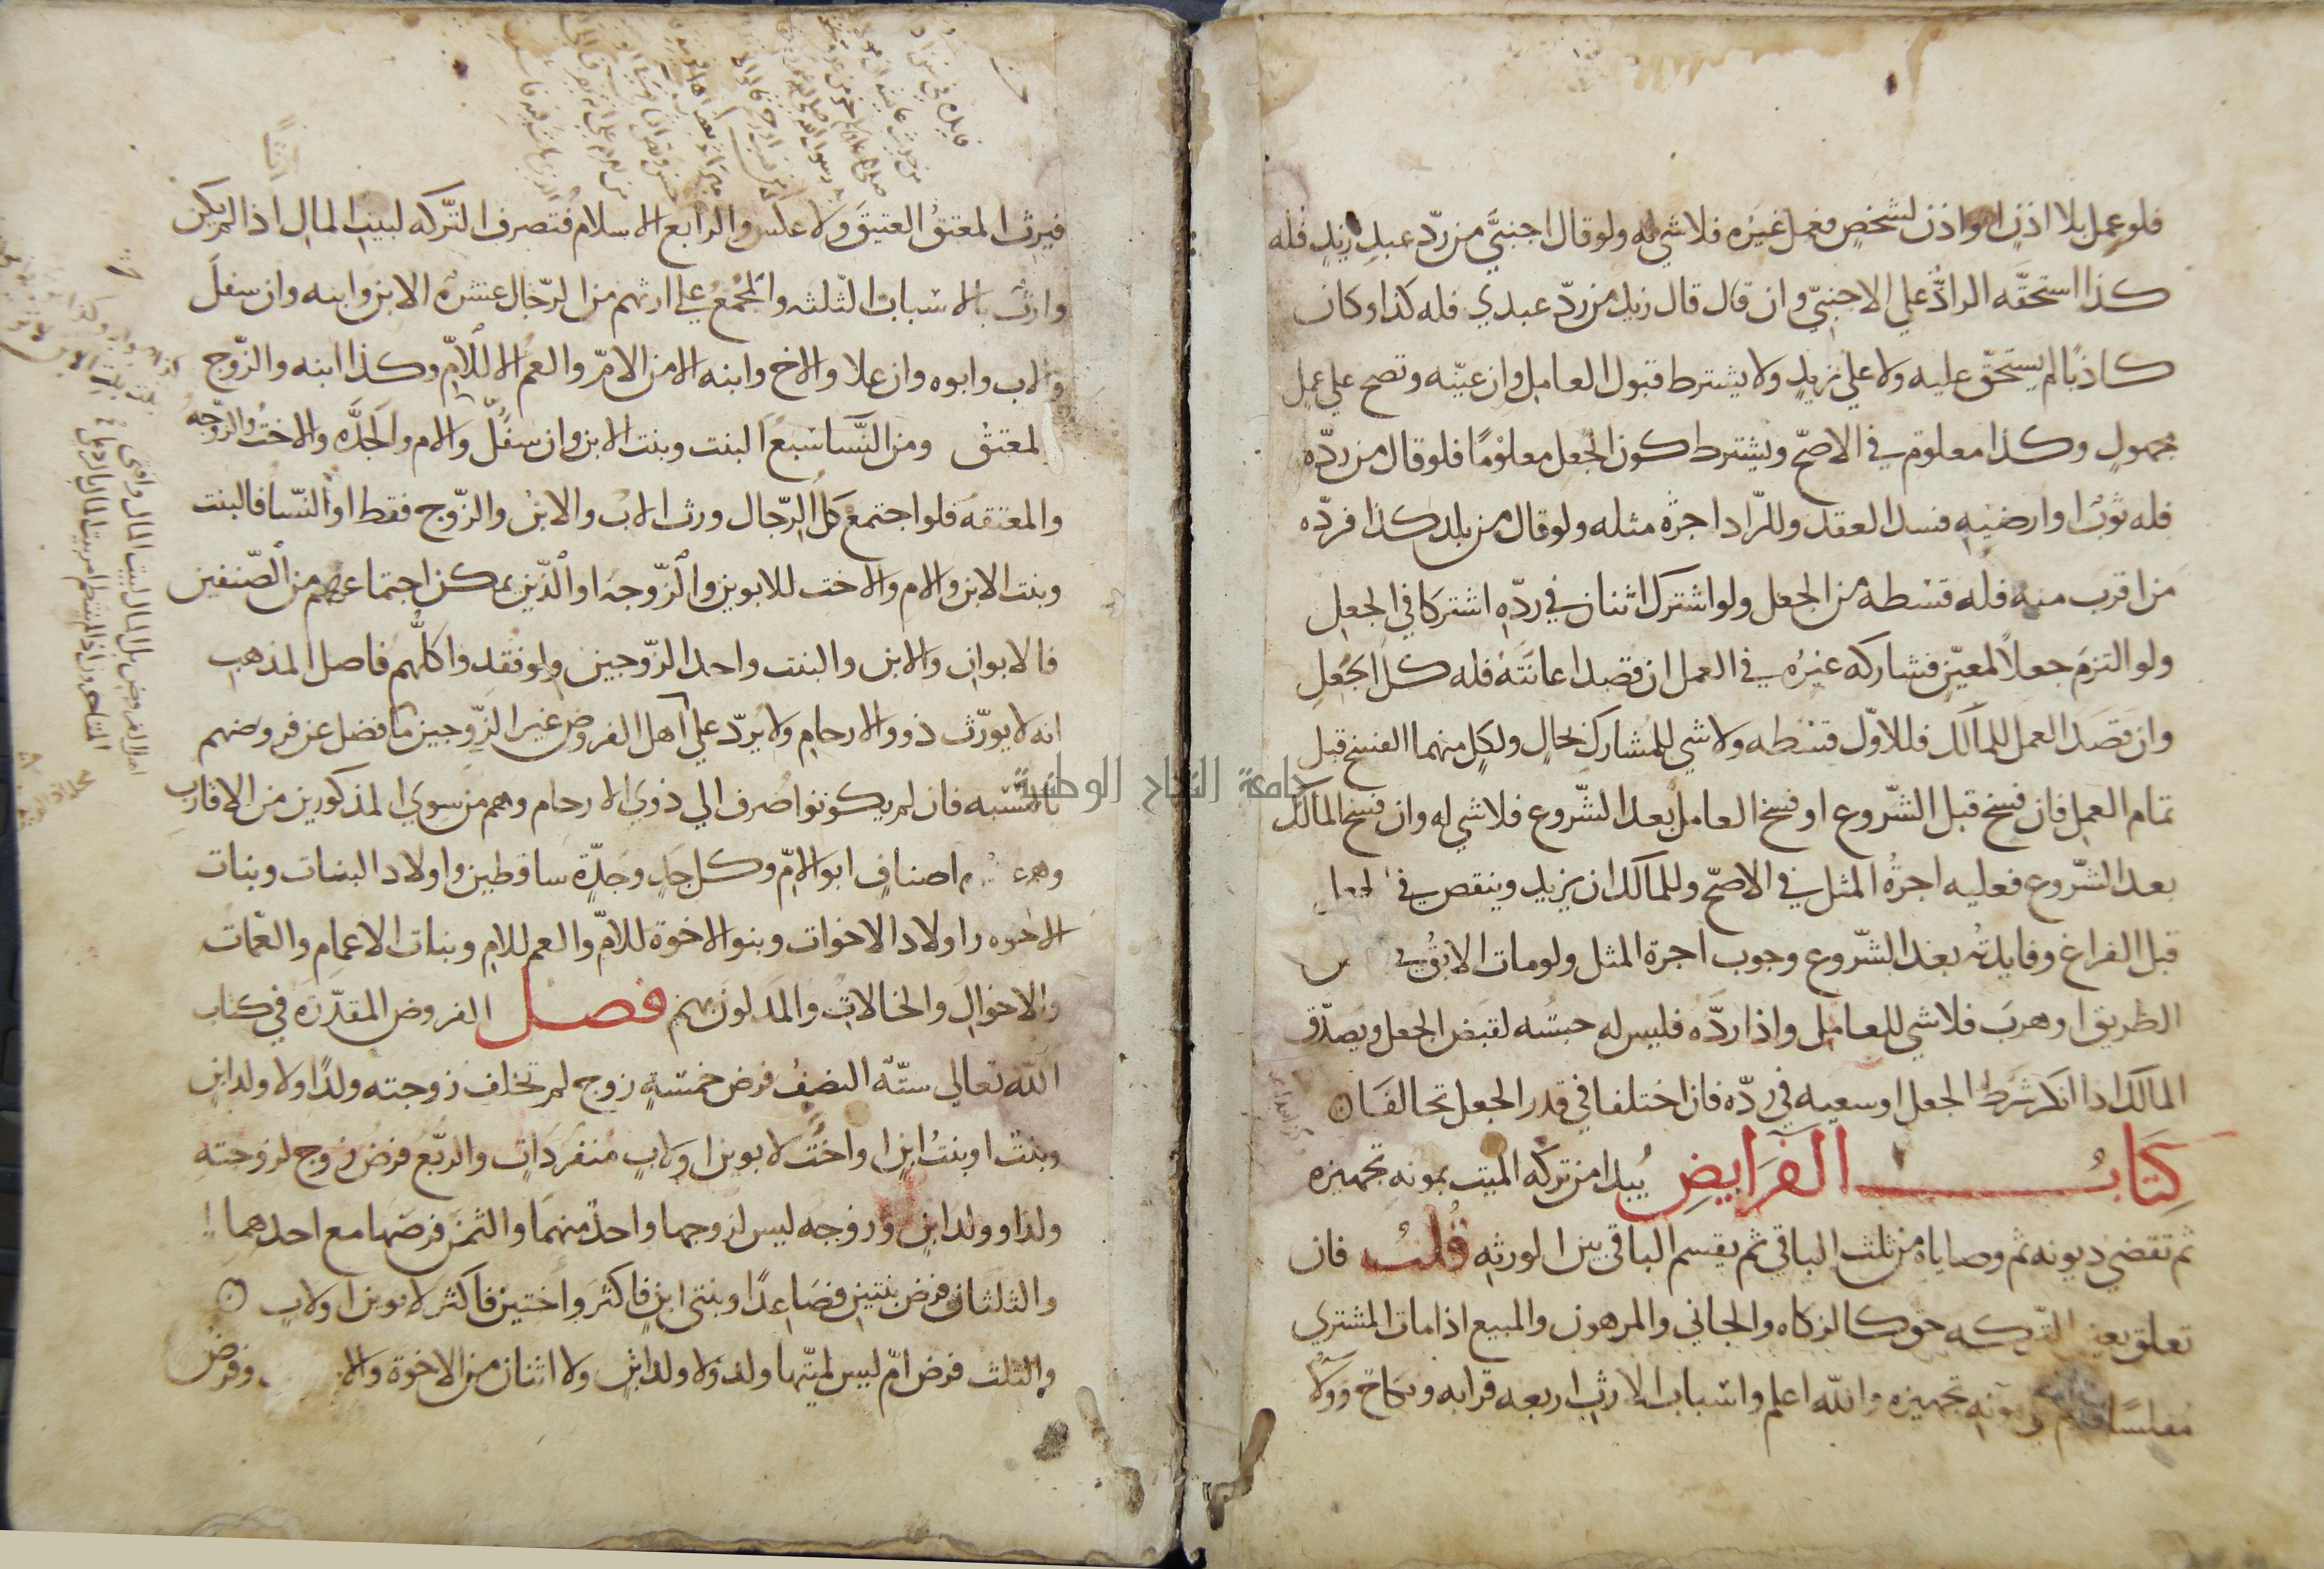 فلو عمل بلا اذن او اذن لشخص فعمل غيره فلا شي له ولو قال اجنبي من ردّ عبد زيد فله
كذا استحقّه الرادُّ علي الاجنبيّ وان قال قال زيد من ردّ عبدي فله كذا وكان
كاذبًا لم يستحقّ عليه ولا علي زيد ولا يشترط قبول العامل وان عيّنه وتصح علي عمل
مجهول وكذا معلوم في الاصحّ ويشترط كون الجعل معلومًا فلو قال من ردّه
فله ثوب او ارضيه فسد العقد وللرّاد اجرة مثله ولو قال من بلد كذا فردّه
من اقرب منه فله قسطه من الجعل ولو اشترك اثنان في ردّه اشتركا في الجعل
ولو التزم جعلاً لمعيّن فشاركه غيره في العمل ان قصد اعانته فله كل الجعل
وان قصد العمل للمالك فللاوّل قسطه ولا شي للمشارك بحال ولكل منهما الفسخ قبل
تمام العمل فان فسخ قبل الشّروع او فسخ العامل بعد الشّروع فلا شي له وان فسخ المالك
بعد الشّروع فعليه اجرة المثل في الاصحّ وللمالك ان يزيد وينقص في الجعل
قبل الفراغ وفايدته بعد الشّروع وجوب اجرة المثل ولو مات الابق في
الطريق او هرب فلا شي للعامل واذا ردّه فليس له حبسه لقبض الجعل ويصدّق
المالك اذا انكر شرط الجعل او سعيه في ردّه فان اختلفا في قدر الجعل تحالفا
كِتَابُ الفَرَايضِ يُبدا من تركة الميت بمونه تجهيزه
ثم تقضي ديونه ثم وصاياه من ثلث الباقي ثم يقسم الباقي بين الورثه قُلتُ فان
تعلق بعين التركه حق كالزكاه والجاني والمرهون والمبيع اذا مات المشتري
مفلسًا قدم علي مونه تجهيزه والله اعلم واسباب الارث اربعه قرابه ونكاح وولاء
فيرث المعتقُ العتيقَ ولا عكس والرابع الاسلام فتصرف التّركه لبيت المال اذا لم يكن
وارث بالاسباب الثلثه والمجمع علي ارثهم من الرّجال عشرة الابن وابنه وان سفل
والاب وابوه وان علا والاخ وابنه الا من الامّ والعم الا للامّ وكذا ابنه والزّوج
والمعتق ومن النّسا سبع البنت وبنت الابن وان سفل والام والجدّه والاخت والزوجه
والمعتقه فلو اجتمع كل الرّجال ورث الاب والابن والزّوج فقط او النّسا فالبنت
وبنت الابن والام والاخت للابوين والزّوجه او الذين يمكن اجتماعهم من الصّنفين
فالابوان والابن والبنت واحد الزّوجين ولو فقدوا كلّهم فاصل المذهب
انه لا يورّث ذوو الارحام ولا يُردّ علي اهل الفروض غير الزّوجين ما فضل عن فروضهم
بالنّسبه فان لم يكونوا صُرف الي ذوي الارحام وهم من سوي المذكورين من الاقارب
وهم اصناف ابو الامّ وكل جد وجدّة ساقطين واولاد البنات وبنات
الاخوه واولاد الاخوات وبنو الاخوة للامّ والعم للام وبنات الاعمام والعمّات
والاخوال والخالات والمدلون بهم فصل الفروض المقدّرة في كتاب
الله تعالي ستّة النصف فرض خمسةٍ زوج لم تخلف زوجته ولدًا ولا ولد ابن
وبنت او بنت ابن او اخت لابوين او لاب منفردات والربّع فرض زوج لزوجته
ولد او ولد ابن وزوجه ليس لزوجها واحد منهما والثمن فرضها مع احدهما
والثلثان فرض بنتين فصاعدًا وبنتي ابن فاكثر واختين فاكثر لابوين او لاب
والثلث فرض امّ ليس لميّتها ولد ولا ولد ابن ولا اثنان من الاخوة والا وفرض
جامعة النجاح الوطنية